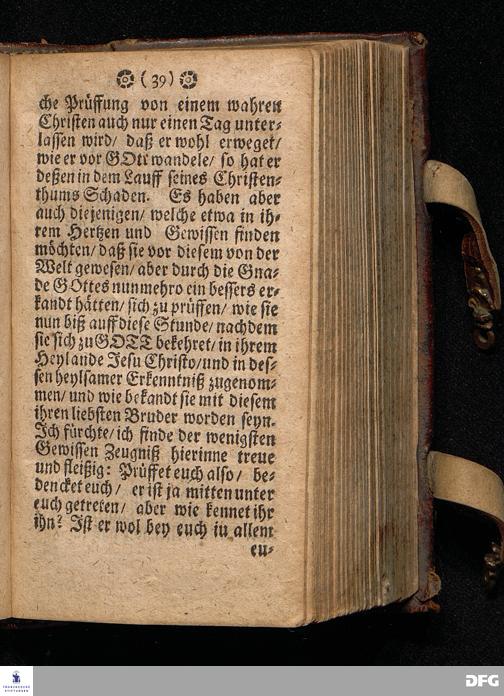 ( 39 )
che Prüffung von einem wahren
Christen auch nur einen Tag unter-
lassen wird/ daß er wohl erweget/
wie er vor GOtt wandele/ so hat er
deßen in dem Lauff seines Christen-
thums Schaden. Es haben aber
auch diejenigen/ welche etwa in ih-
rem Hertzen und Gewissen finden
möchten/ daß sie vor diesem von der
Welt gewesen/ aber durch die Gna-
de GOttes nunmehro ein bessers er-
kandt hätten/ sich zu prüffen/ wie sie
nun biß auff diese Stunde/ nachdem
sie sich zu GOTT bekehret/ in ihrem
Heylande Jesu Christo/ und in des-
sen heylsamer Erkenntniß zugenom-
men/ und wie bekandt sie mit diesem
ihren liebsten Bruder worden seyn.
Ich fürchte/ ich finde der wenigsten
Gewissen Zeugniß hierinne treue
und fleißig: Prüffet euch also/ be-
dencket euch/ er ist ja mitten unter
euch getreten/ aber wie kennet ihr
ihn? Ist er wol bey euch in allem
eu-
FRANCKESCHE
STIFTUNGEN
DFG